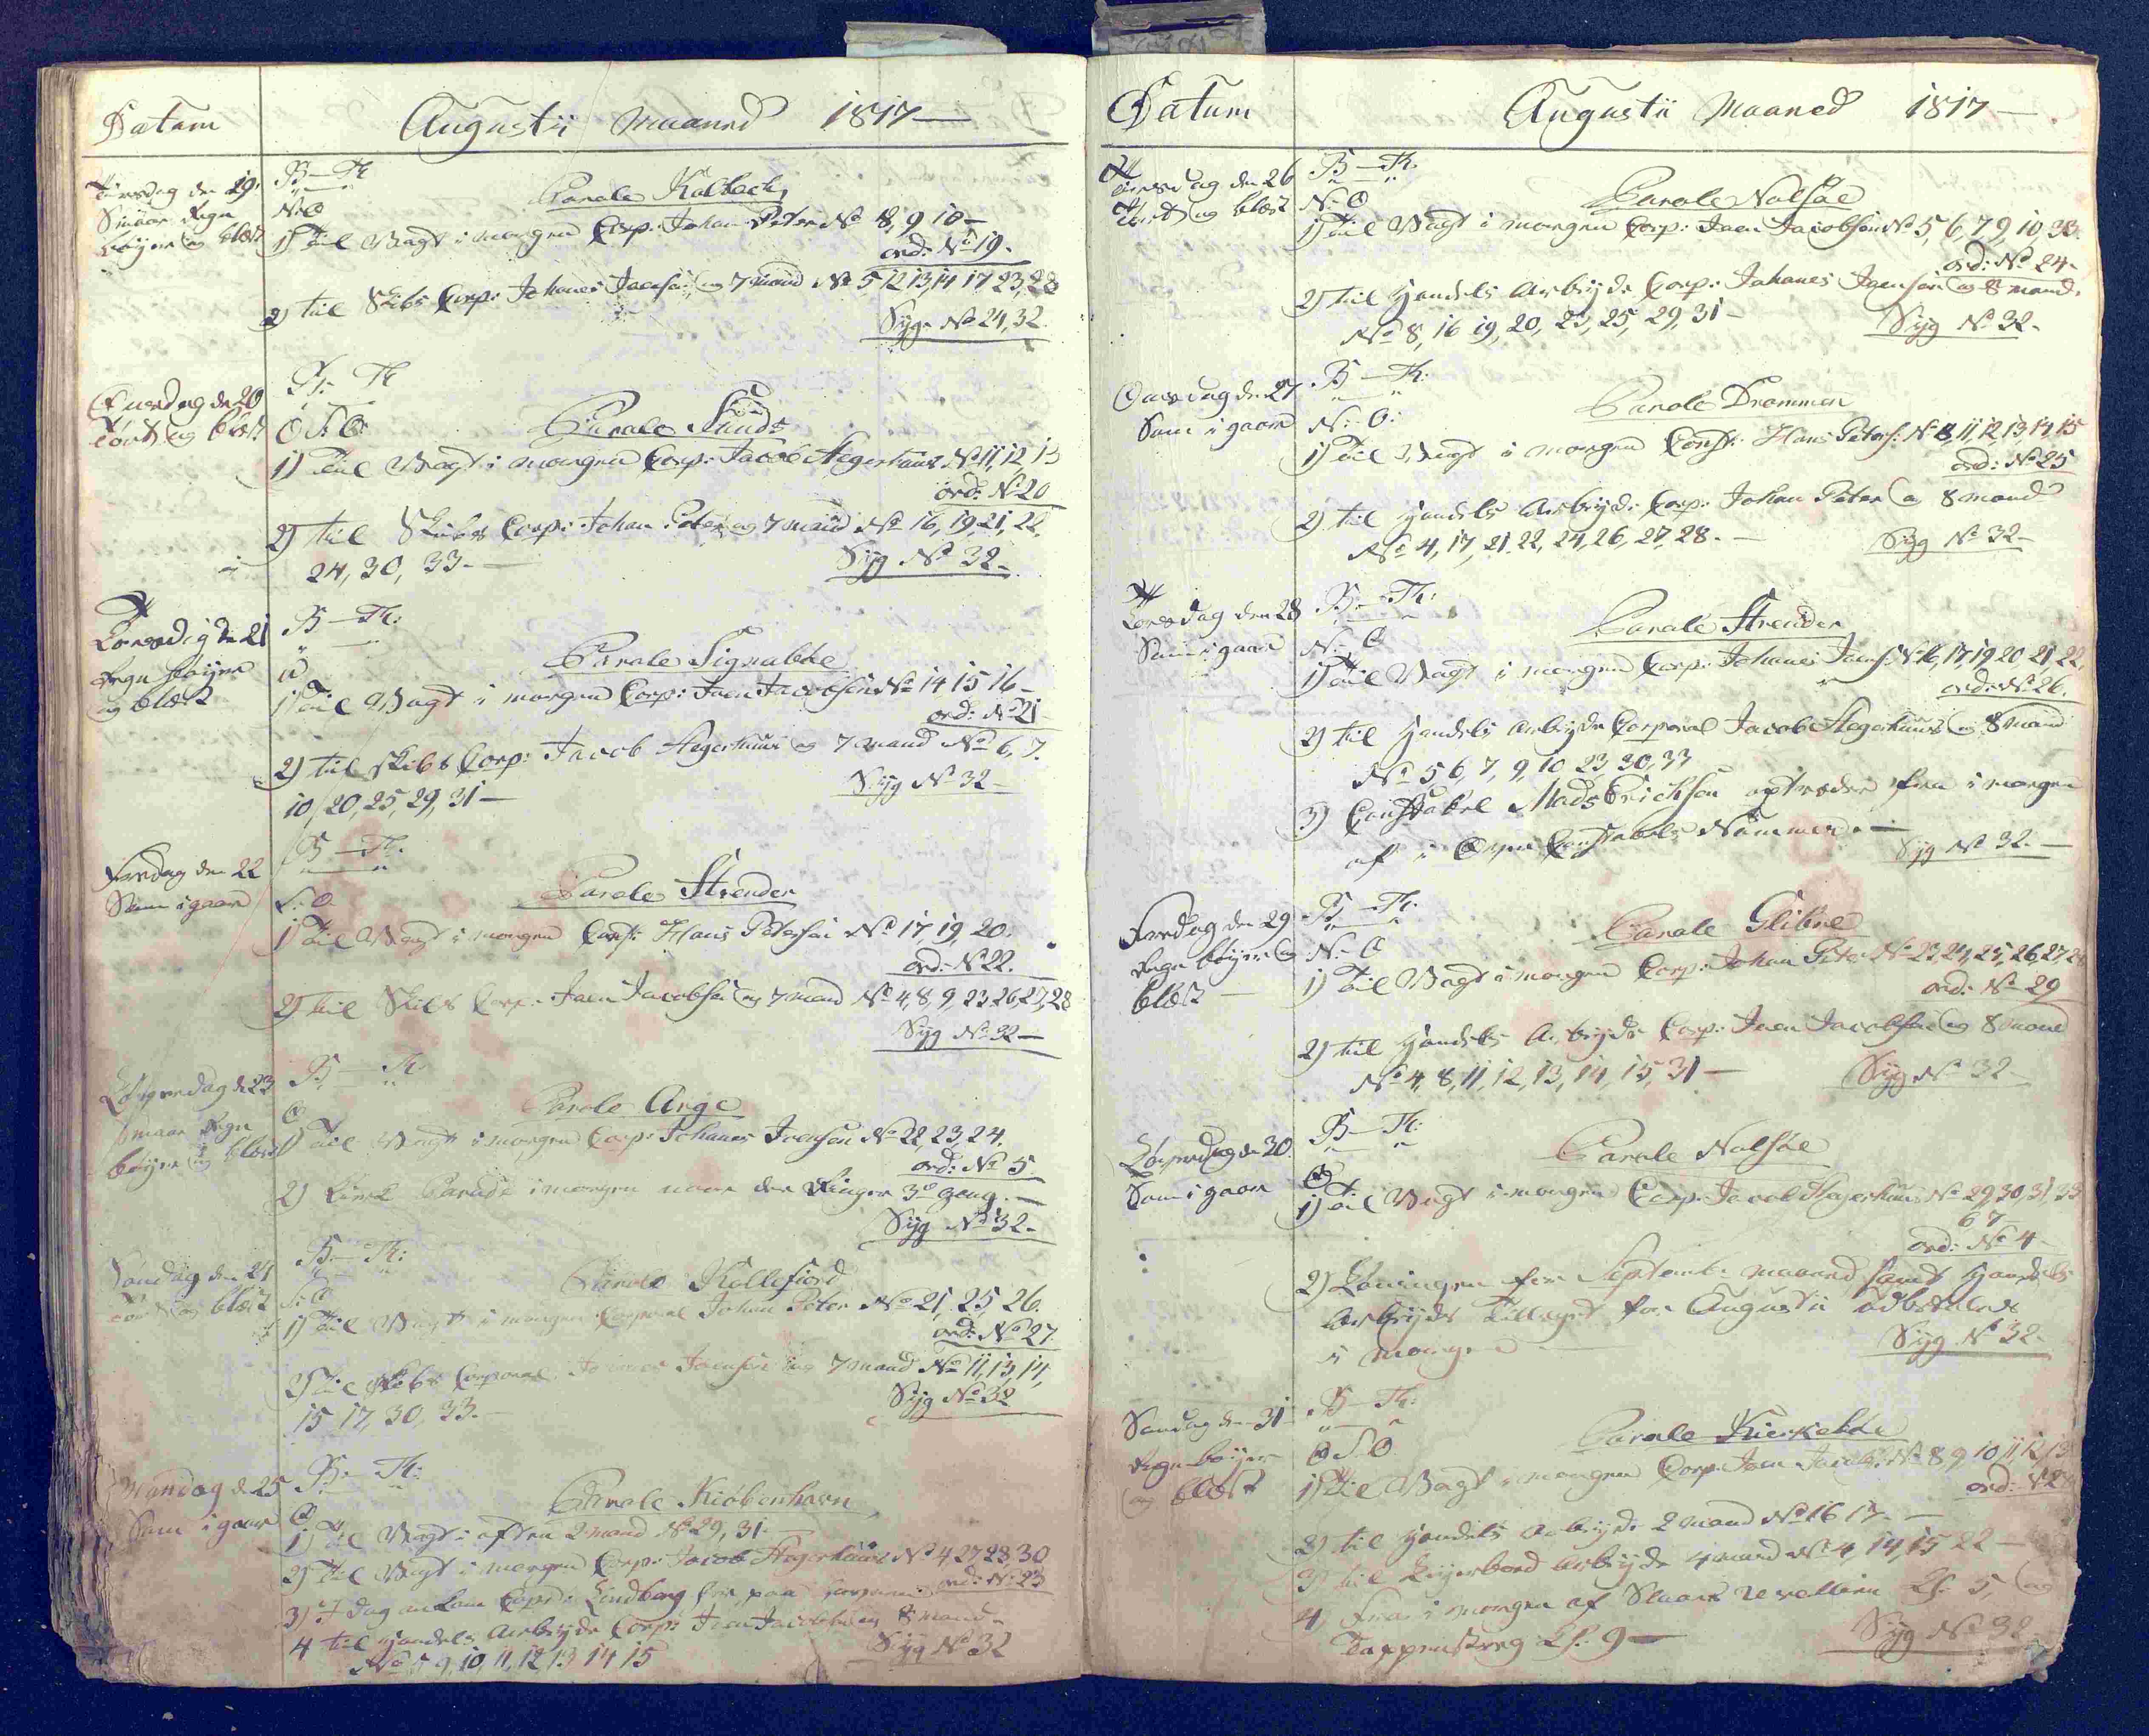 Datum
Augustii Maaned 1817 —
Tiirsdag den 19.
Smaae Regn
bøyer og blæst
B — Th
N: O
Parole Kalbach
1) Til Vagt i morgen Corp: Johan Peter No 8, 9 10 —
ord: No 19.
2) til Skibs Corp: Johanes Joensen og 7 mand No 5 12 13, 14 17 23, 28
Syge No 24, 32.
Onsdag den 20
Tørt og blæst
B: Th
O S: O:
Parole Sund
1) Til Vagt i morgen Corp: Jacob Hegerhuus No 11, 12, 13
ord: No 20
2) til Skibs Corp: Johan Peter og 7 mand No 16, 19, 21, 22,
24, 30, 33. —
Syg No 32 —
Torsdag den 21
Regn bøyer
og blæst
B — Th:
Parole Signabøe
1) Til Vagt i morgen Corp: Joen Jacobsen No 14 15 16 —
ord: No 21
2) til skibs Corp: Jacob Hegerhuus og 7 mand No 6, 7.
10, 20, 25, 29, 31 —
Syg No 32 —
Fredag den 22
Som i gaar
B — Th:
S: O.
Parole Strender
1) Til Vagt i morgen Const: Hans Petersen No 17, 19, 20.
ord: No 22.
2) til Skibs Corp: Joen Jacobsen og 7 mand No 4, 8, 9, 23 26, 27, 28
Syg No 32 —
Løverdag d: 23
smaae Regn
bøyer og blæst
B — Th:
O
Parole Arge
1) Til Vagt i morgen Corp: Johanes Joensen No 22, 23, 24.
ord: No 5.
2) Kirke Parade i morgen naar der Ringer 3de gang. —
Syg No 32 —
Søndag den 24
tørt og blæst
B — Th:
S: O
Parole Kollefiord
1) Til Vagt i morgen Corporal Johan Peter No 21, 25, 26.
ord: No 27.
2) til skibs Corporal Johanes Joensen og 7 mand No 11, 13, 14,
15 17, 30, 33. —
Syg No 32
Mandag d: 25
Som i gaar
B: — Th:
O
Parole Kiøbenhavn
1) Til Vagt i aften 2 mand No 29, 31. —
2) Til Vagt i morgen Corp: Jacob Hegerhuus No 4 27 28, 30
ord: No 23
3) I dag ankom Capt: Lindberg
4 til Handels Arbeyde Corp: Joen Jacobsen og 8 mand
No 5 9, 10, 11, 12 13 14 15
Syg No 32
Datum
Augustii Maaned 1817 —
Tiirsdag den 26
Tørt og blæst
B — Th:
N: O
Parole Nolsøe
1) Til Vagt i morgen Corp: Joen Jacobsen No 5, 6, 7, 9, 10 33.
ord: No 24 —
2) til Handels Arbeyde Corp: Johanes Joensen og 8 mand.
No 8, 16 19, 20, 23, 25, 29, 31 —
Syg No 32 —
Onsdag d: 27
Som i gaar
B — Th:
N: O:
Parole Drammen
1) Til Vagt i morgen Const: Hans Peters: No 8, 11, 12 13, 14 15
ord: No 25
2) til Handels Arbeyde Corp: Johan Peter og 8 mand
No 4, 17, 21. 22, 24, 26, 27, 28. —
Syg No 32 —
Torsdag den 28
Som i gaar
B: — Th:
N: O
Parole Strender
1) Til Vagt i morgen Corp: Johanes Joens: No 16, 17 19 20 21 22.
ord: No 26.
2) til Handels Arbeyde Corporal Jacob Hegerhuus og 8 mand
No 5 6, 7, 9, 10 23 30, 33
3) Constabel Mads Erichsen optræder fra i morgen
af i Over Constabels Nummer. —
Syg No 32. —
Fredag den 29
Regn bøyer og
blæst —
B — Th:
N: O
Parole Glibre
1) Til Vagt i morgen Corp: Johan Peter No 23, 24, 25, 26 27, 28
ord: No 29
2) til Handels Arbeyde Corp: Joen Jacobsen og 8 mand
No 4, 8, 11, 12, 13, 14, 15, 31 —
Syg No 32 —
Løverdag d: 30.
Som i gaar
B — Th:
O
Parole Nolsøe
1) Til Vagt i morgen Corp: Jacob Hegerhuus No 29, 30, 31, 33
6 7
ord: No 4 —
2) Løningen for Septemb: maaned samt Handels
Arbeyds Tillægt for Augustii udbetales
i morgen —
Syg No 32 —
Søndag den 31
Regn bøyer
og blæst
B — Th:
O S: O
Parole Kierkebøe
1) Til Vagt i morgen Corp: Joen Jacobs: No 8, 9, 10, 11, 12, 13
ord: No 28
2) til Handels Arbeyde 2 mand No 16 17. —
3) til Leyerbord Arbeyde 4 mand No 4, 14, 15 22 —
4) Fra i morgen af Slaaes revellien Kl: 5, og
Tappenstreg Kl: 9 —
Syg No 32